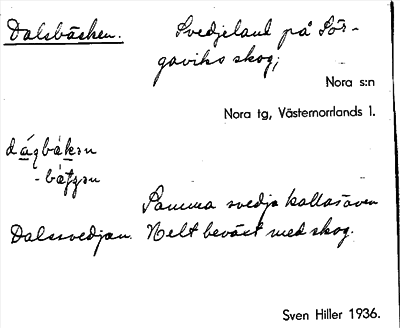 Dalsbäcken. Svedjeland på Sör-
gaviks skog;
Nora s:n
Nora tg, Västernorrlands l.
Samma svedja kallas även
Dalssvedjan. Helt beväxt med skog.
Sven Hiller 1936.